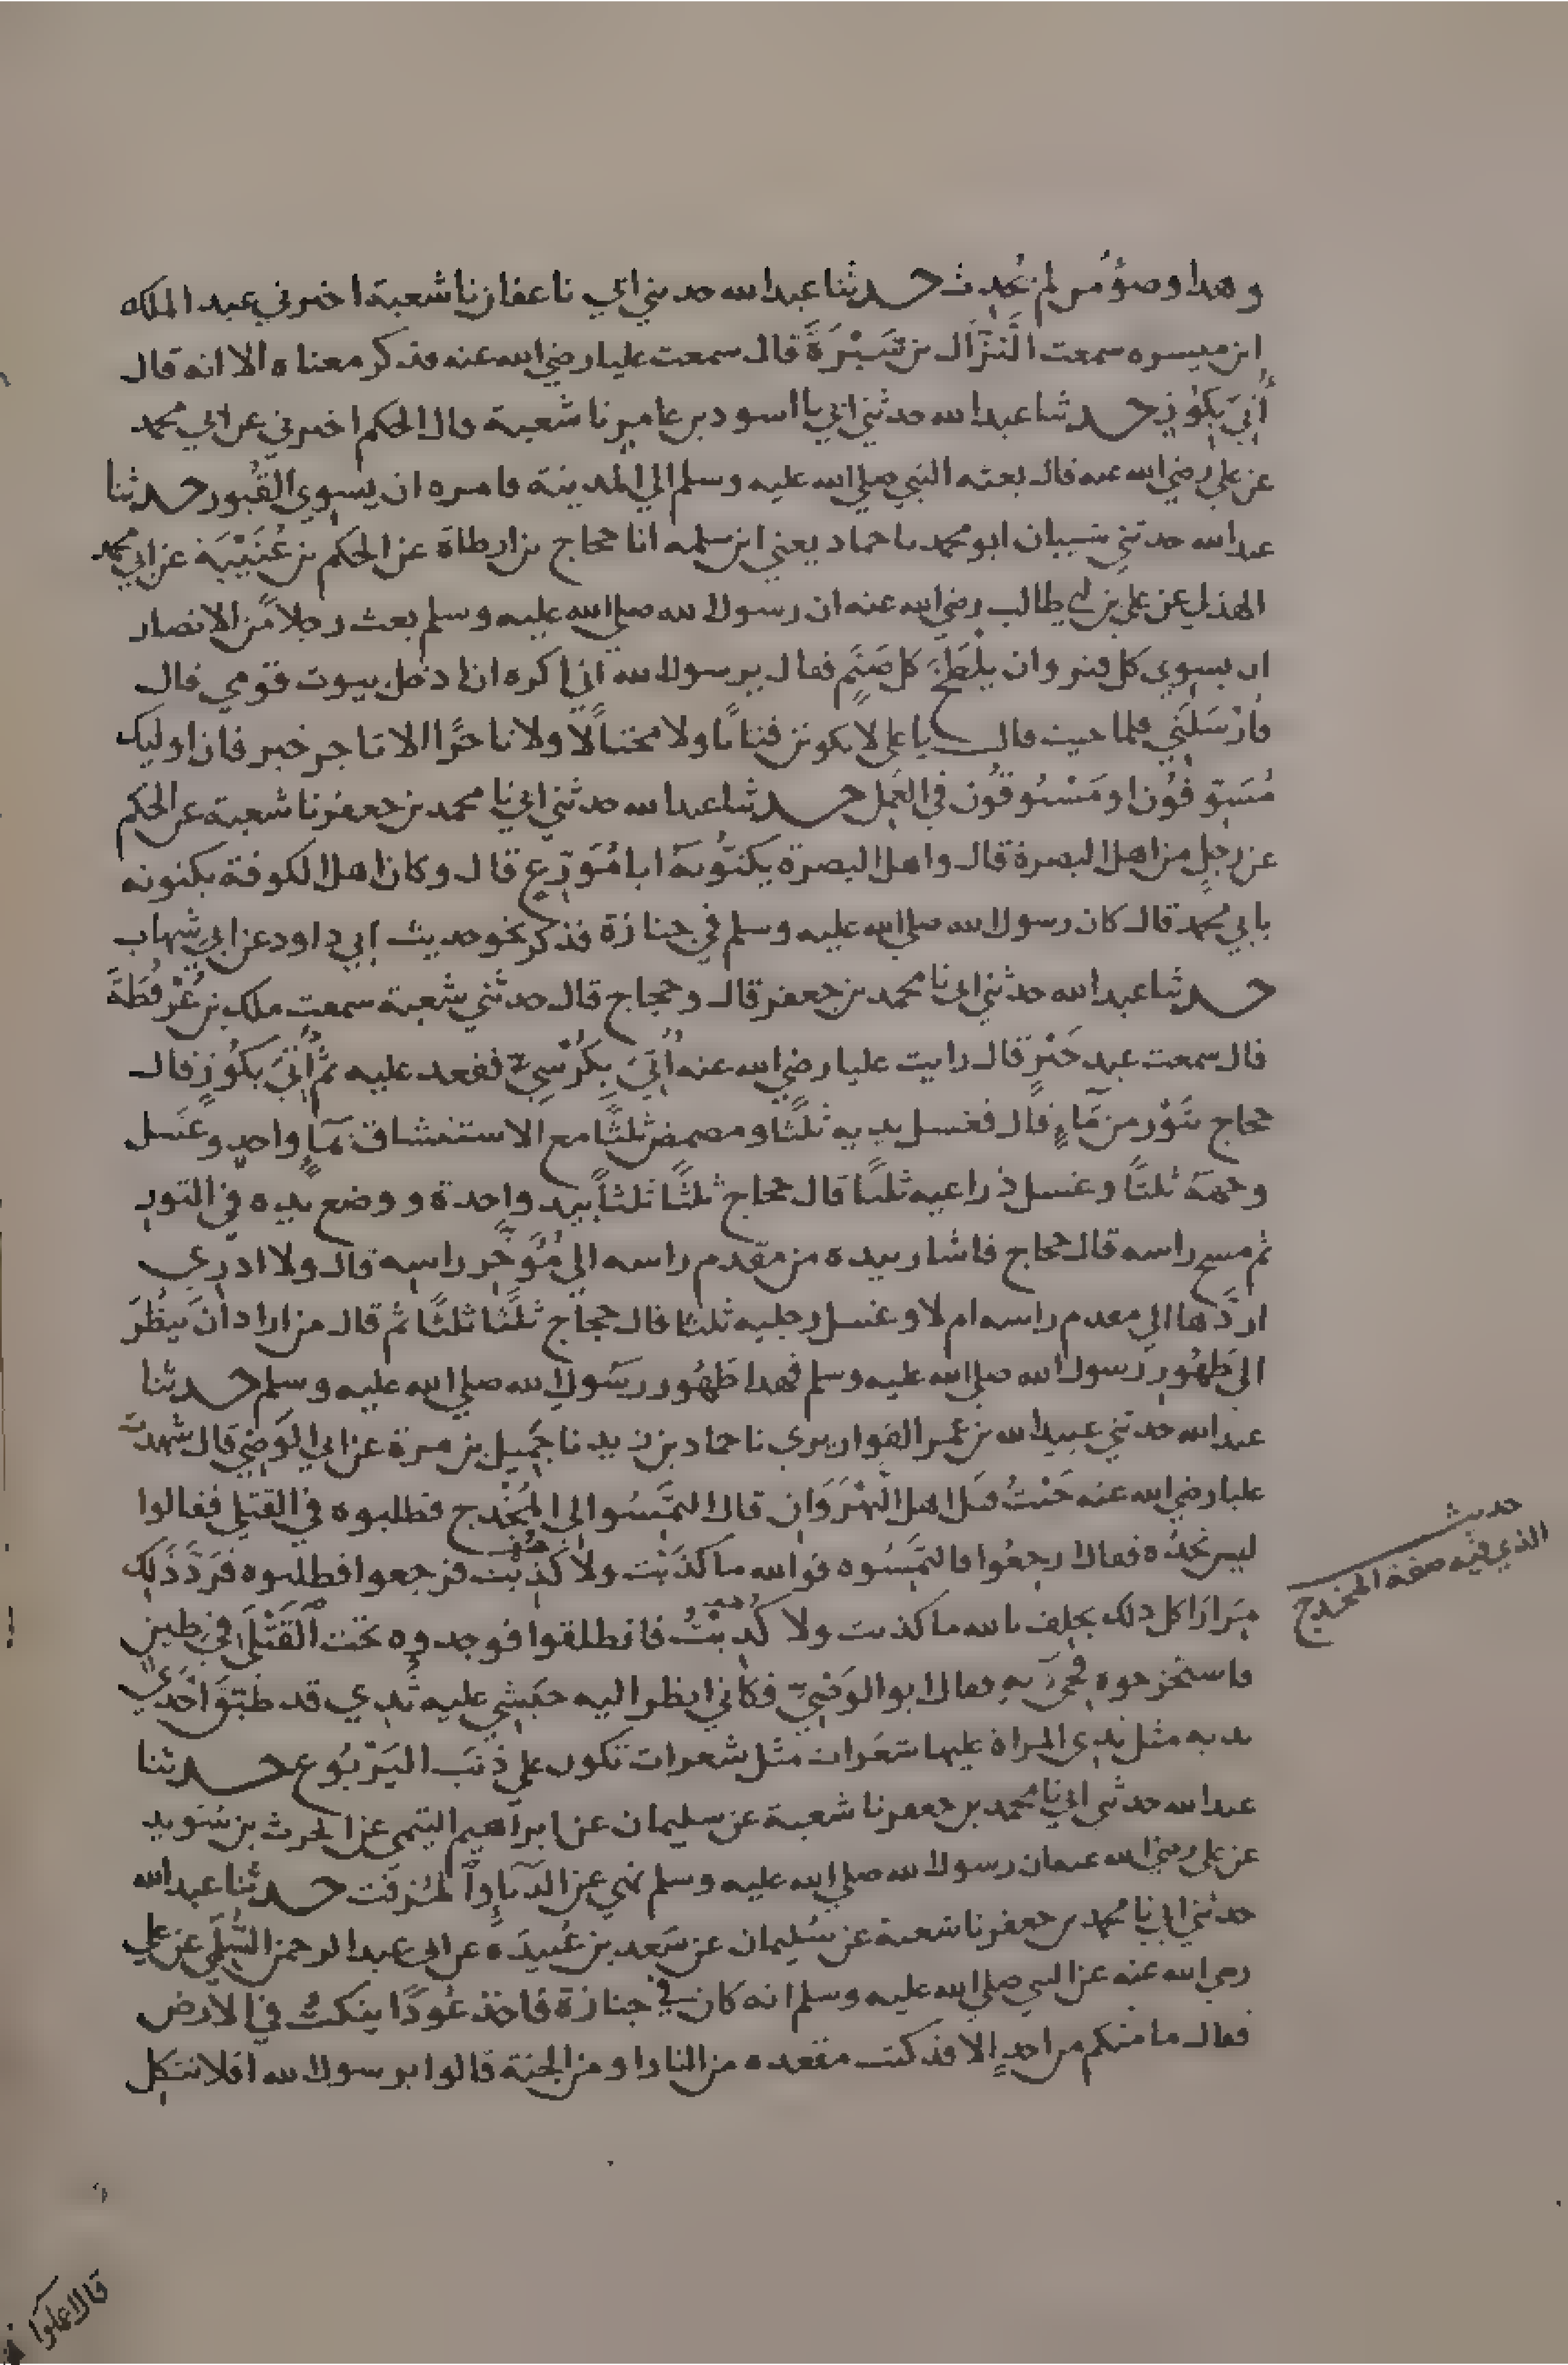 وهدا وضؤ من لم يُحدِث حدثنا عبدالله حدثني ابي نا عفان نا شعبة اخبرني عبد الملك
ابن ميسره سمعت النَّزَّال بن سَبْرَةَ قال سمعت عليا رضي الله عنه فذكر معناه الا انه قال
أُتِيَ بكُوز حدثنا عبدالله حدثني ابي نا اسود بن عامر نا شعبة قال الحكم اخبرني عن ابي محمد
عن علي رضي الله عنه قال بعثه النبي صلي الله عليه وسلم الي المدينة فامره ان يسوي القُبور حدثنا
عبدالله حدثني شيبان ابو محمد نا حماد يعني ابن سلمه انا حجاج بن ارطاة عن الحكم بن عُتَيْبَة عن ابي محمد
الهذلي عن علي بن ابي طالب رضي الله عنه ان رسول الله صلي الله عليه وسلم بعث رجلا من الانصار
ان يسوي كل قبر وان يلْطَخَ كل صَنَمٍ فقال يرسول الله اني اكره ان ادخل بيوت قومي قال
فأرْسَلَني فلما جيت قال يا علي لا تكونن فتانًا ولا مختالًا ولا تاجرًا الا تاجر خير فان اوليك
مُسَوِّفُون او مَسْبُوقُون في العَمل حدثنا عبدالله حدثني ابي نا محمد بن جعفر نا شعبة عن الحكم
عن رجلٍ من اهل البصرة قال واهل البصرة يكنُّونهُ ابا مُوَرِّع قال وكان اهل الكوفة يكنونه
بابي محمد قال كان رسول الله صلي الله عليه وسلم في جنازة فذكر نحو حديث ابي داود عن ابي شهاب
حدثنا عبدالله حدثني ابي نا محمد بن جعفر قال وحجاج قال حدثني شعبة سمعت ملك بن عُرْفُطَةَ
قال سمعت عبد خَيْرٍ قال رايت عليا رضي الله عنه أُتِيَ بِكُرْسِيّ فقعد عليه ثم أُتِيَ بكُوزٍ قال
حجاج بتَوْر من مَّاءٍ قال فغسل يديه ثلثًا ومضمض ثلثًا مع الاستنشاق بمَاءٍ واحدٍ وغَسَل
وجهَهُ ثلثًا وغسل ذراعيه ثلثًا قال حجاج ثلثًا ثلثًا بيد واحدة ووضع يديه في التور
ثم مسح راسه قال حجاج فاشار بيده من مقدم راسه الي مُؤَخَّر راسه قال ولا ادري
اردَّها الي مقدم راسه ام لا وغسل رجليه ثلثا قال حجاج ثلثًا ثلثًا ثم قال من اراد أن ينظُرَ
الي طَهُور رسول الله صلي الله عليه وسلم فهدا طَهُور رسُول الله صلي الله عليه وسلم حدثنا
عبدالله حدثني عبيدالله بن عمر القواريري نا حماد بن زيد نا جَمِيل بن مرة عن ابي الوَضِي قال شهدت
عليا رضي الله عنه حَيْثُ قتل اهل النَّهْرَوَانِ قال التَمِسُوا الي المُخْدج فطلبوه في القتلي فقالوا
ليس نجدُه فقال ارجعُوا فالتَمِسُوه فوالله ما كذَبْت ولا كُذِبت فرجعوا فطلبوه فرَدَّدَ ذَلِك
مِرارًا كل ذلك يحلف بالله ما كذبت ولا كُذِبْتُ فانطلقوا فوجدوه تحت القَتْلَي في طين
فاستخرجوه فجيَ به فقال ابو الوَضِيّ فكاني انظر اليه حَبَشِي عليه ثُدي قد طَبَق احْدَي
يديه مثل ثدي المراة عليها شعَرات مثل شعرات تكون علي ذَنَب اليَرْبُوع حدثنا
عبدالله حدثني ابي نا محمد بن جعفر نا شعبة عن سليمان عن ابراهيم التيمي عن الحرث بن سُويد
عن علي رضي الله عنه ان رسول الله صلي الله عليه وسلم نهي عن الدُّبَّاءِ والمُزَفَّت حدثنا عبدالله
حدثني ابي نا محمد بن جعفر نا شعبة عن سُليمان عن سَعد بن عُبيدَه عن ابي عبد الرحمن السُّلَمي عن علي
رضي الله عنه عن النبي صلي الله عليه وسلم انه كان في جنازة فاخذ عُودًا ينكتُ في الارض
فقال ما منكم من احدٍ إلا قد كتب مقعده من النار او من الجنة قالوا يرسول الله افلا نتكل
حديث
الذي فيه صفة المخدج
قال اعملوا